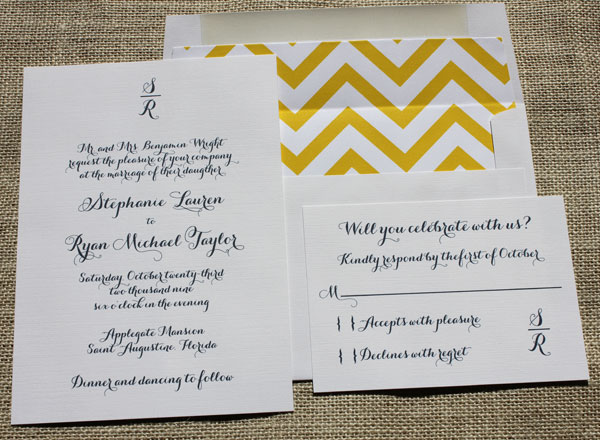 S
R
Mr and Mrs Benjamin Wright
request the pleasure of your company
at the marriage of their daugther
Stephanie Lauren
to
Ryan Michael Taylor
Saturday, October twenty-third
two thousand nine
six o'clock in the evening
Applegate Mansion
Saint Augustine, Florida
Dinner and dancing to follow
Will you celebrate with us?
Kindly respond by the first of October
M
{ } Accepts with pleasure
{ } Declines with regret
S
R